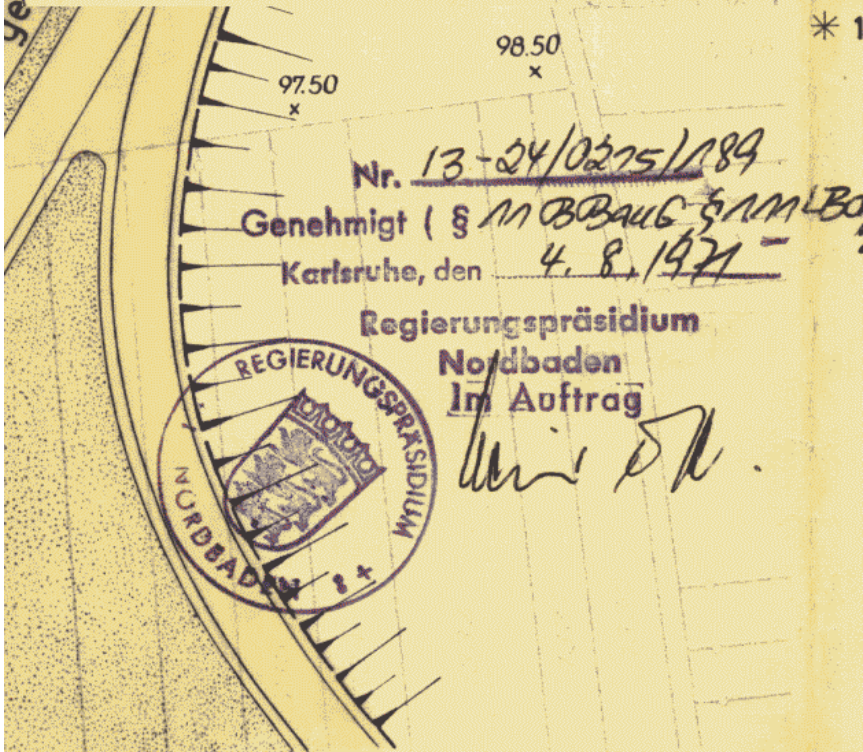 ge
98.50
97.50
* 1
Nr. 13-24/0215/189
Genehmigt ( § 11 BBauG, § 111 LBO
Karlsruhe, den 4. 8. 1971
Regierungspräsidium
Nordbaden
Im Auftrag
REGIERUNGSPRÄSIDIUM
NORDBADEN 8 +